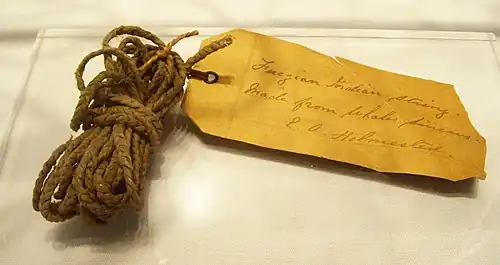 Fuegian Indian string.
Made from whales sinews.
E. A. Holmested